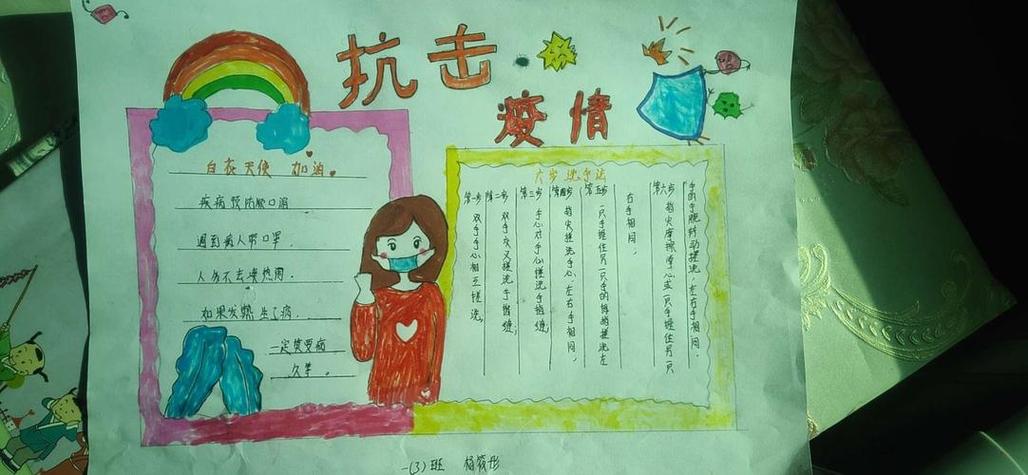 抗击
疫情
白衣天使 加油。
疾病预防顺口溜
遇到病人带口罩,
人多不去凑热闹.
如果发热生了病,
一定需要病
六步洗手法
第一步 双手手心相互搓洗。
第二步 双手交叉搓洗手指缝。
第三步 手心对手心搓洗手指缝,
第四步 指尖搓洗手心,左右手相同,
第五步 一只手握住另一只手的拇指搓洗左
右手相同,
第六步 指尖摩擦掌心或一只手握住另一只
手的手腕转动搓洗,左右手相同.
一(3)班 杨筱彤